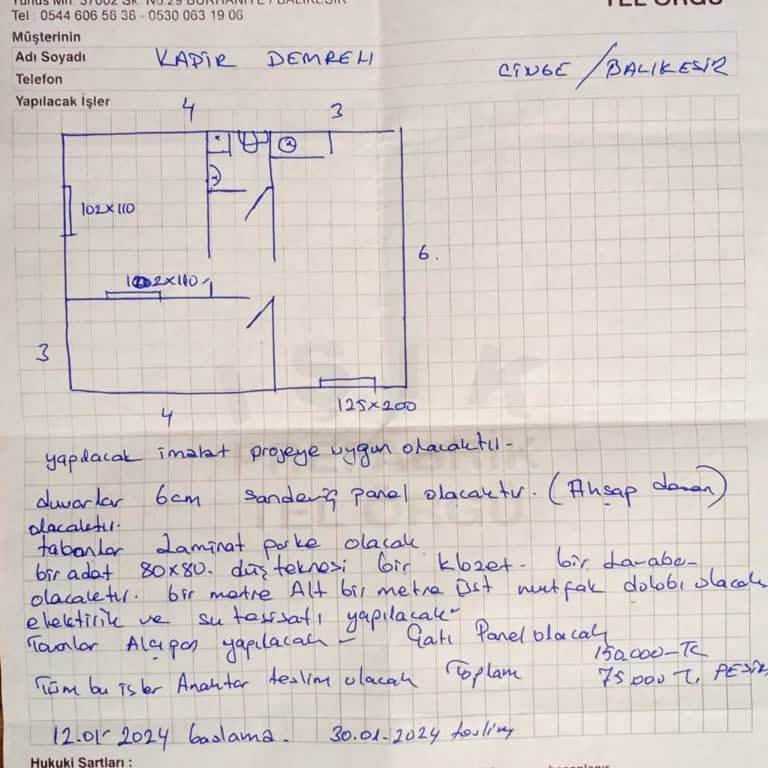 Yunus Mh. 37002 Sk. No:29 BURHANİYE / BALIKESİR
TEL ÖRGÜ
Tel : 0544 606 58 36 - 0530 063 19 06
Müşterinin
Adı Soyadı KADİR DEMRELİ
CİNGE / BALIKESİR
Telefon
Yapılacak İşler
4
3
102x110
6.
102x110
3
125x200
4
yapılacak imalat projeye uygun olacaktır-
duvarlar 6cm sandeviç panel olacaktır. (Ahşap desen)
olacaktır.
tabanlar Laminat parke olacak
bir adet 80x80. düş teknesi bir klozet- bir lavabo-
olacaktır. bir metre Alt bir metre üst mutfak dolobı olacak
elektirik ve su tesisatı yapılacak-
Tavanlar Alçıpan yapılacak - Çatı Panel olacak
150.000-TL
Tüm bu işler Anahtar teslim olacak Toplam 75000 TL PEŞİN
12.01-2024 baslama. 30.01-2024 teslim
Hukuki Şartları :